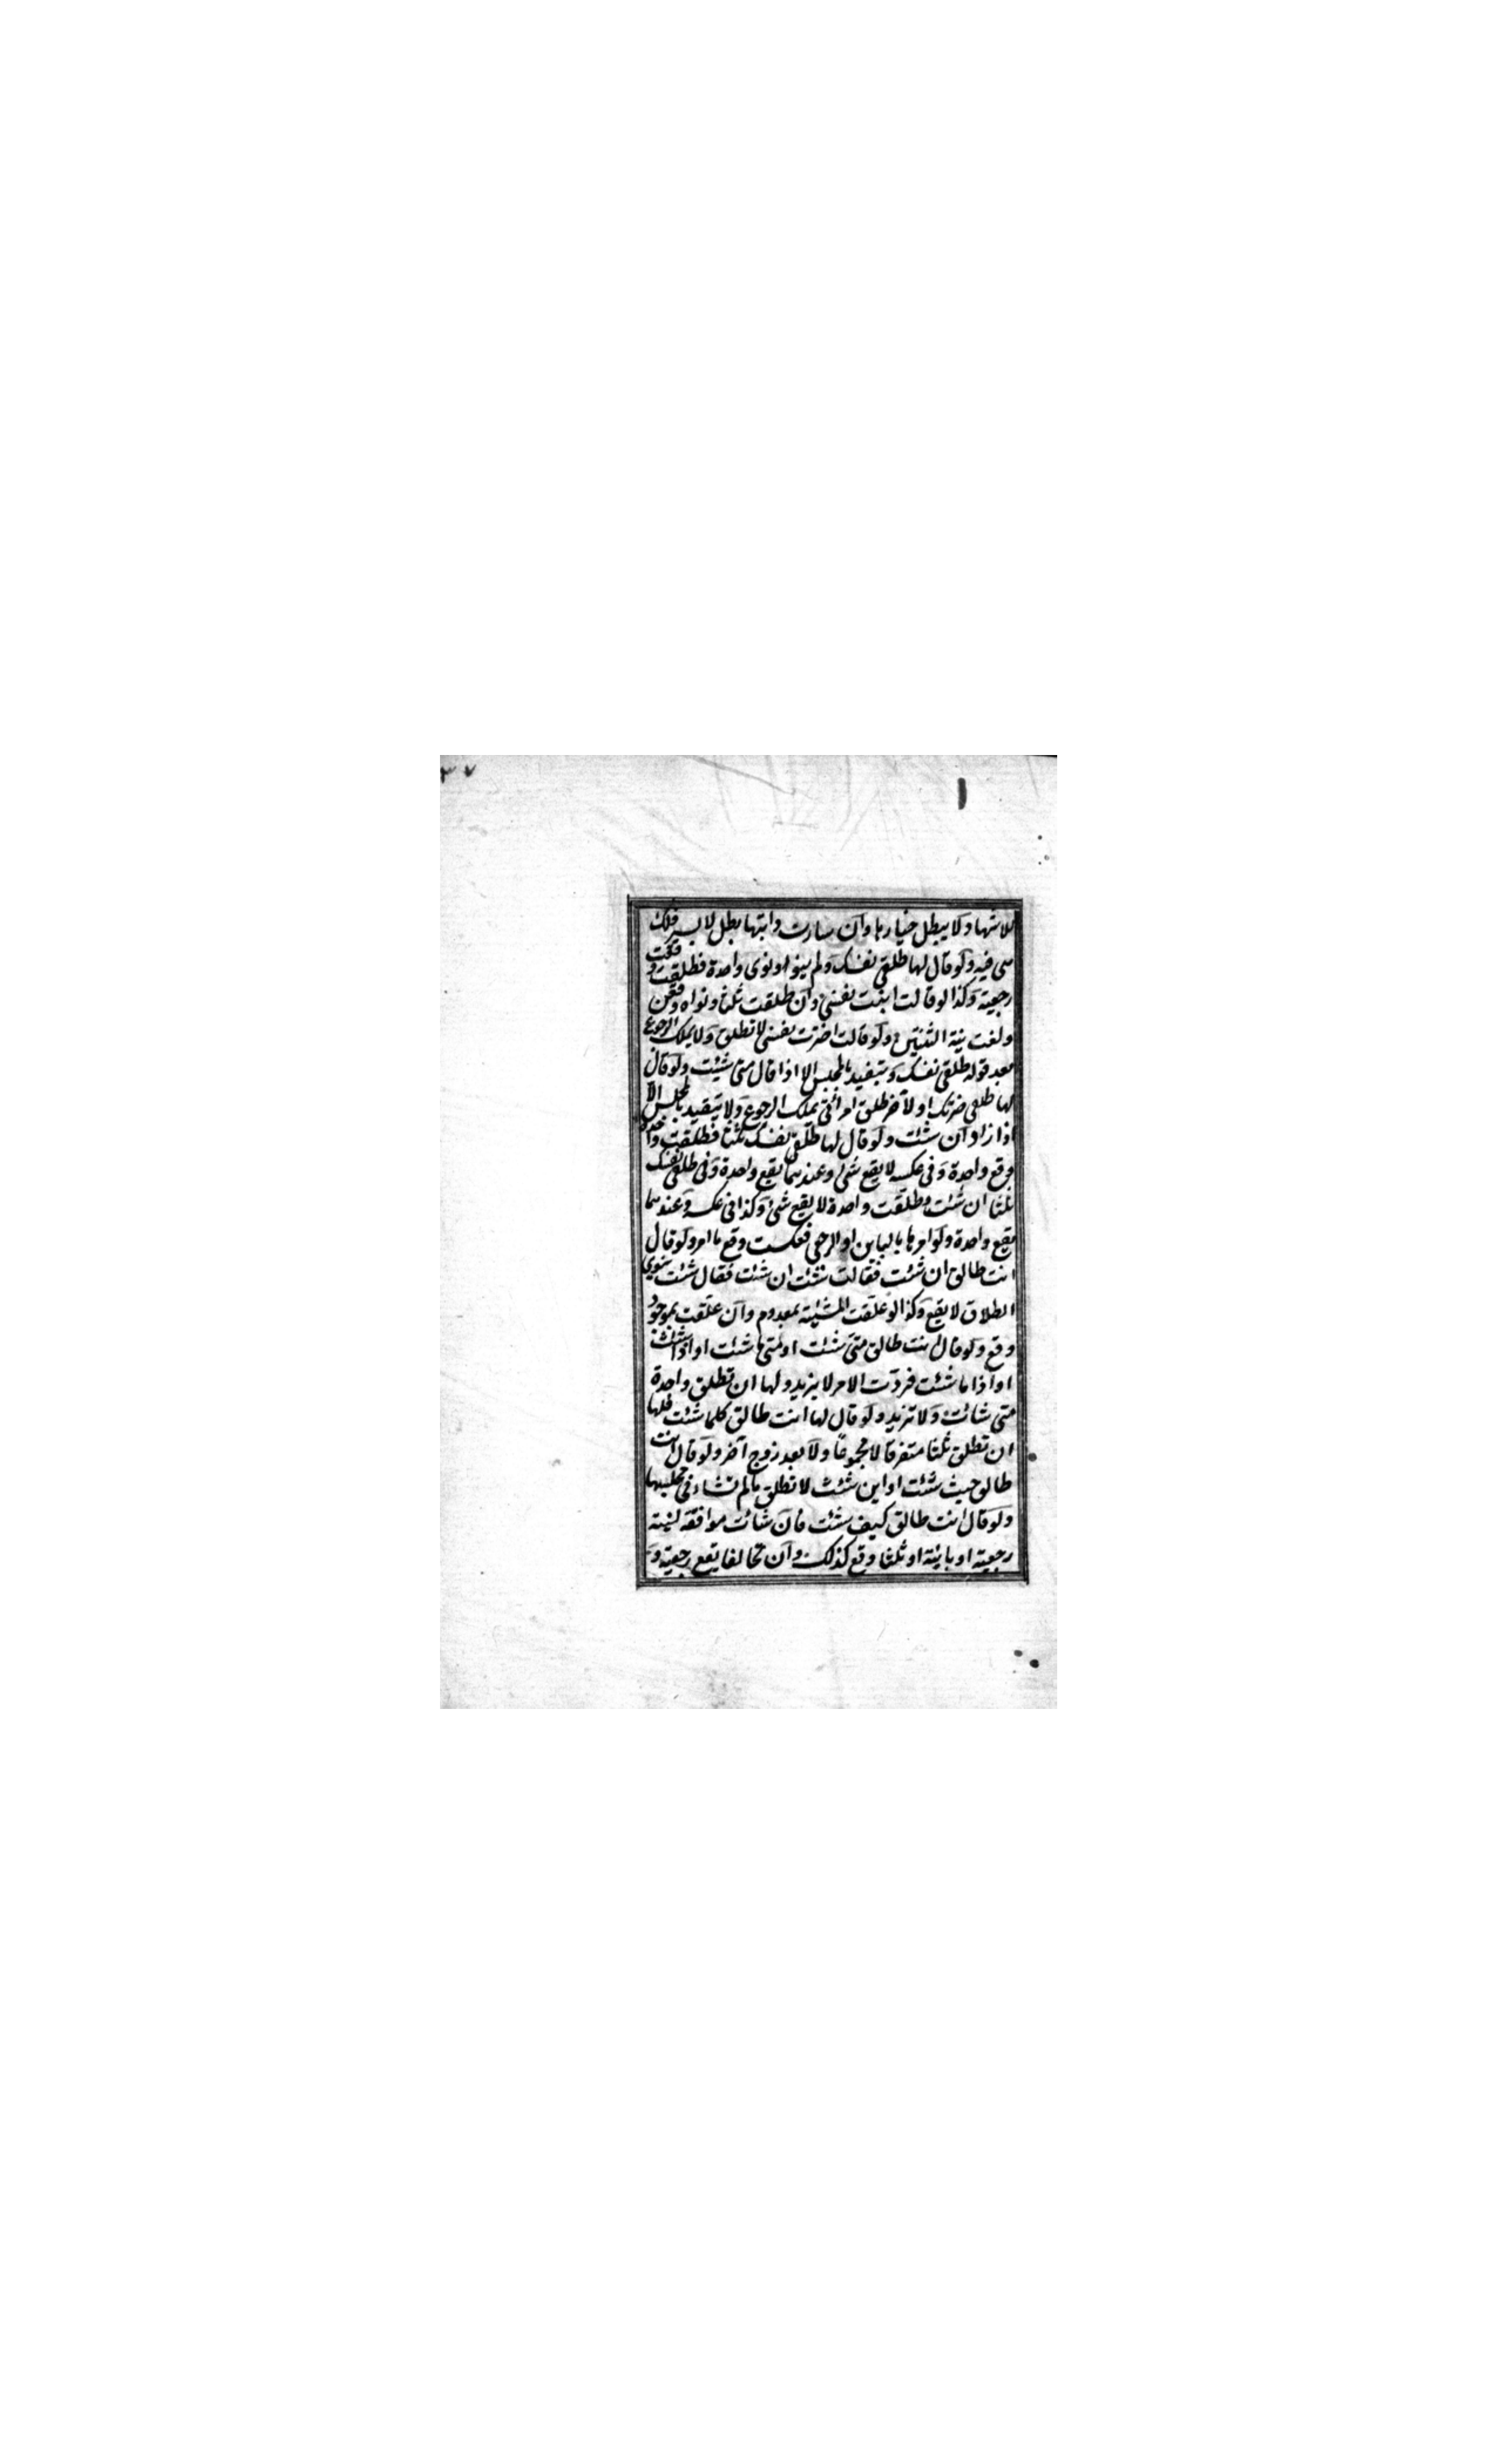 ٣٧
للاشهاد لا يبطل خيارها وان سارت دابتها بطل لا بسير فلك
هى فيه ولو قال لها طلقى نفسك ولم ينو او نوى واحدة فطلقت وقعت
رجعية وكذا لو قالت ابنت نفسى وان طلقت ثلثا ونواه وقعن
ولغت نية الثنتين ولو قالت اخترت نفسى لا تطلق ولا يملك الرجوع
بعد قوله طلقى نفسك ويتقيد بالمجلس الا اذا قال متى شئت ولو قال
لها طلقى ضرتك او لآخر طلق امرأتى يملك الرجوع ولا يتقيد بالمجلس الا
اذا زاد ان شئت ولو قال لها طلقى نفسك ثلثا فطلقت واحدة
وقع واحدة وفى عكسه لا يقع شئ وعندهما يقع واحدة وفى طلقى نفسك
ثلثا ان شئت وطلقت واحدة لا يقع شئ وكذا فى عكسه وعندهما
يقع واحدة ولو امرها بالباين او الرجعى فعكست وقع ما امر ولو قال
انت طالق ان شئت فقالت شئت ان شئت فقال شئت ينوى
الطلاق لا يقع وكذا لو علقت المشيئة بمعدوم وان علقت بموجود
وقع ولو قال انت طالق متى شئت او متى ما شئت او اذا شئت
او اذا ما شئت فردت الامر لا يرتد ولها ان تطلق واحدة
متى شائت ولا تزيد ولو قال لها انت طالق كلما شئت فلها
ان تطلق ثلثا متفرقا لا مجموعا ولا بعد زوج آخر ولو قال انت
طالق حيث شئت او اين شئت لا تطلق ما لم تشاء فى مجلسها
ولو قال انت طالق كيف شئت فان شائت موافقة لنيته
رجعية او بائنة او ثلثا وقع كذلك وان تخالفا يقع رجعية و